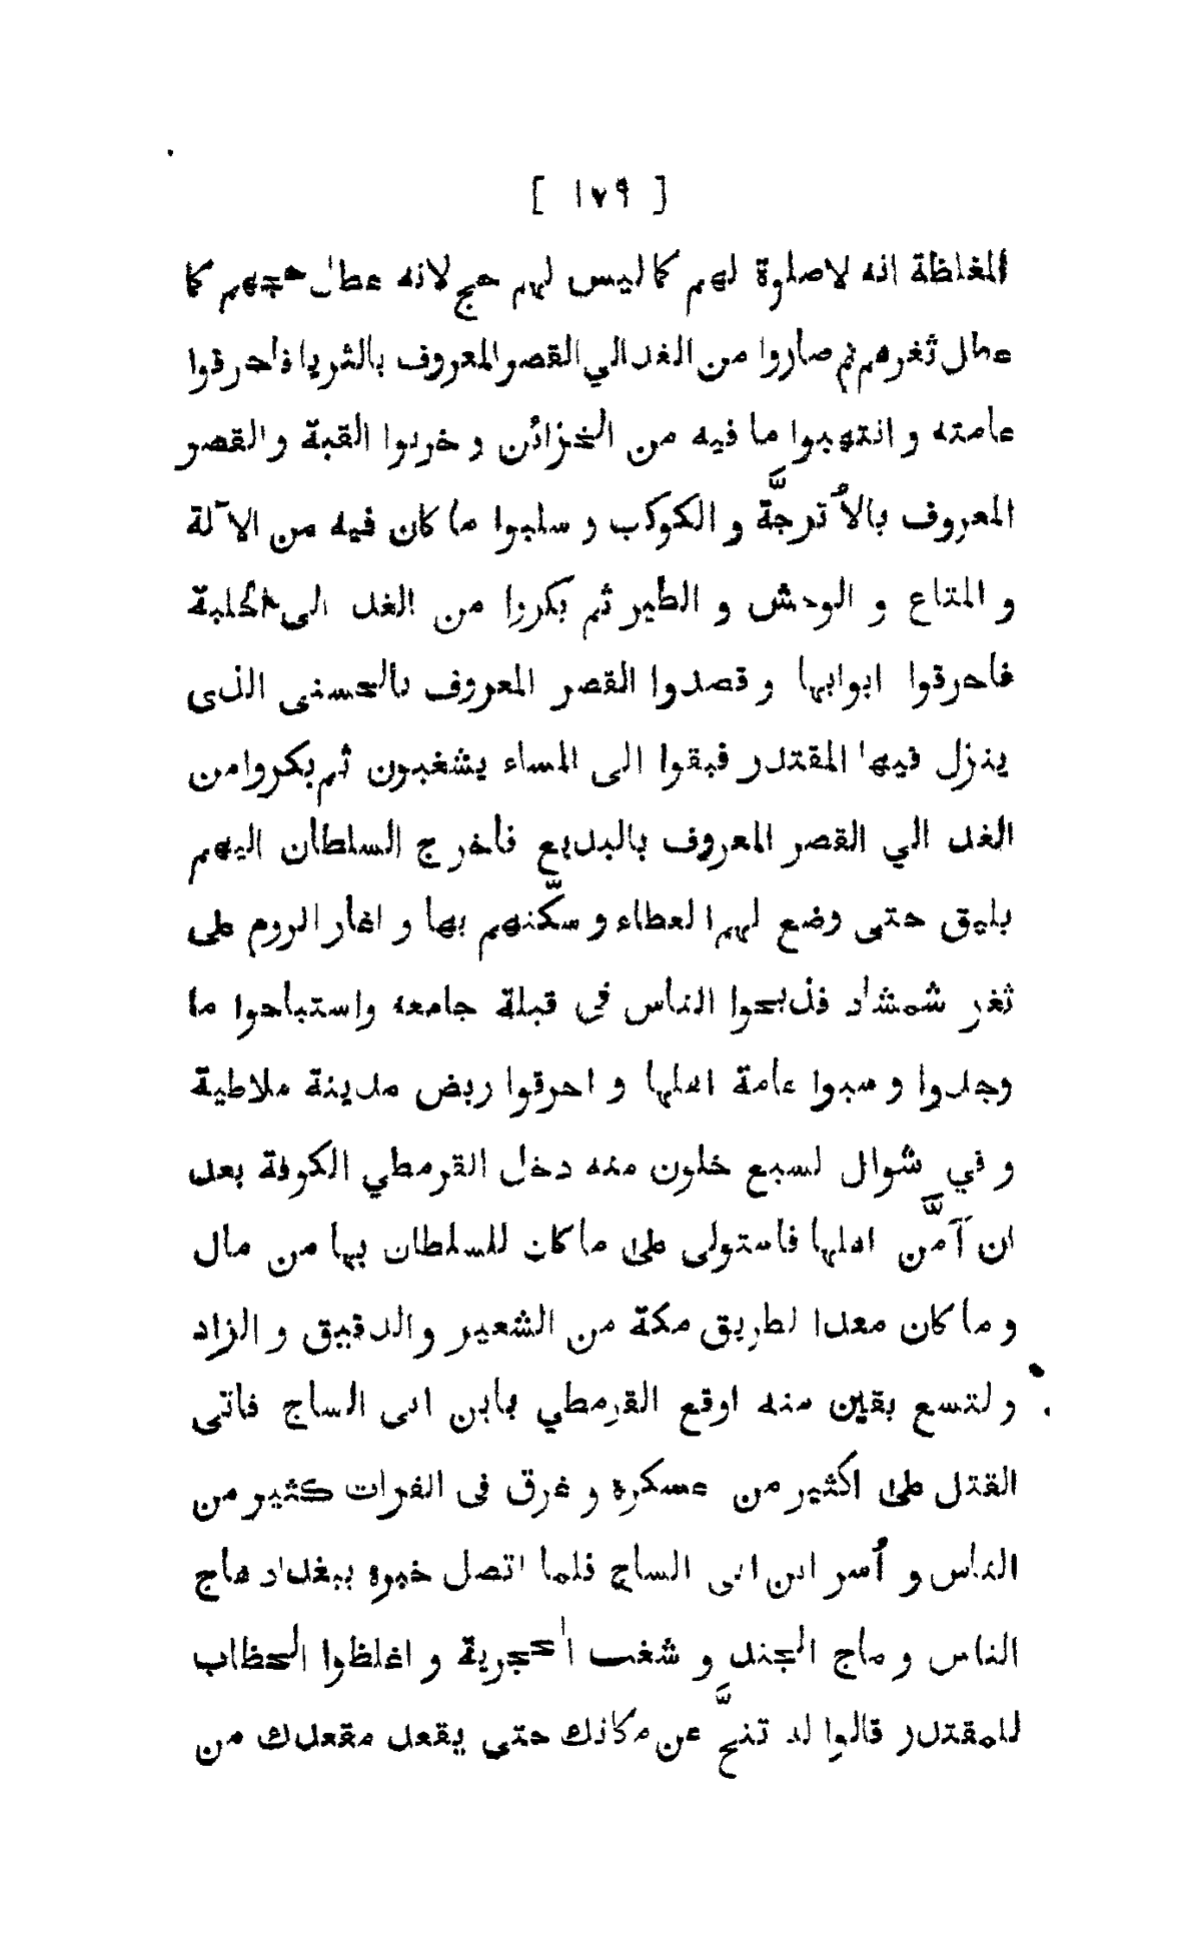 [ ١٧٩ ]
المغلظة انه لاصلوة لهم كما ليس لهم حج لانه عطل حجهم كما
عطل ثغرهم ثم صاروا من الغد الي القصر المعروف بالثريا فاحرقوا
عامته و انتهبوا ما فيه من الخزائن و خربوا القبة و القصر
المعروف بالأترجَّة و الكوكب و سلبوا ما كان فيه من الآلة
و المتاع و الوحش و الطير ثم بكروا من الغد الى الحلبة
فاحرقوا ابوابها و قصدوا القصر المعروف بالحسنى الذى
ينزل فيها المقتدر فبقوا الى المساء يشغبون ثم بكروا من
الغد الي القصر المعروف بالبديع فاخرج السلطان اليهم
بليق حتى وضع لهم العطاء و سكّنهم بها و اغار الروم على
ثغر شمشاد فذبحوا الناس في قبلة جامعه واستباحوا ما
وجدوا و سبوا عامة اهلها و احرقوا ربض مدينة ملاطية
و في شوال لسبع خلون منه دخل القرمطي الكوفة بعد
ان آمَّن اهلها فاستولى على ما كان للسلطان بها من مال
و ما كان معدا لطريق مكة من الشعير و الدقيق و الزاد
و لتسع بقين منه اوقع القرمطي بابن ابى الساج فاتى
القتل على اكثير من عسكره و غرق فى الفرات كثير من
الناس و أسر ابن ابى الساج فلما اتصل خبره ببغداد هاج
الناس و ماج الجند و شغب الحجرية و اغلظوا الخطاب
للمقتدر قالوا له تنحَّ عن مكانك حتى يقعد مقعدك من